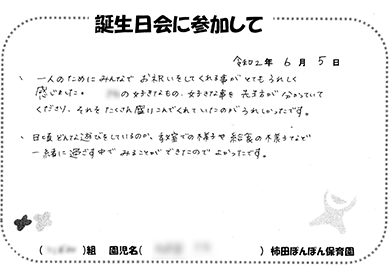 誕生日会に参加して
令和2年 6月 5日
、一人のためにみんなでお祝いをしてくれる事がとてもうれしく
感じました。 の好きなもの、好きな事を先生方が分かっていて
くださり、それをたくさん盛りこんでくれていたのがうれしかったです。
、日頃どんな遊びをしているのか、教室での様子や給食の様子など
一緒に過ごす中でみることができたのでよかったです。
( )組 園児名( ) 柿田ぽんぽん保育園